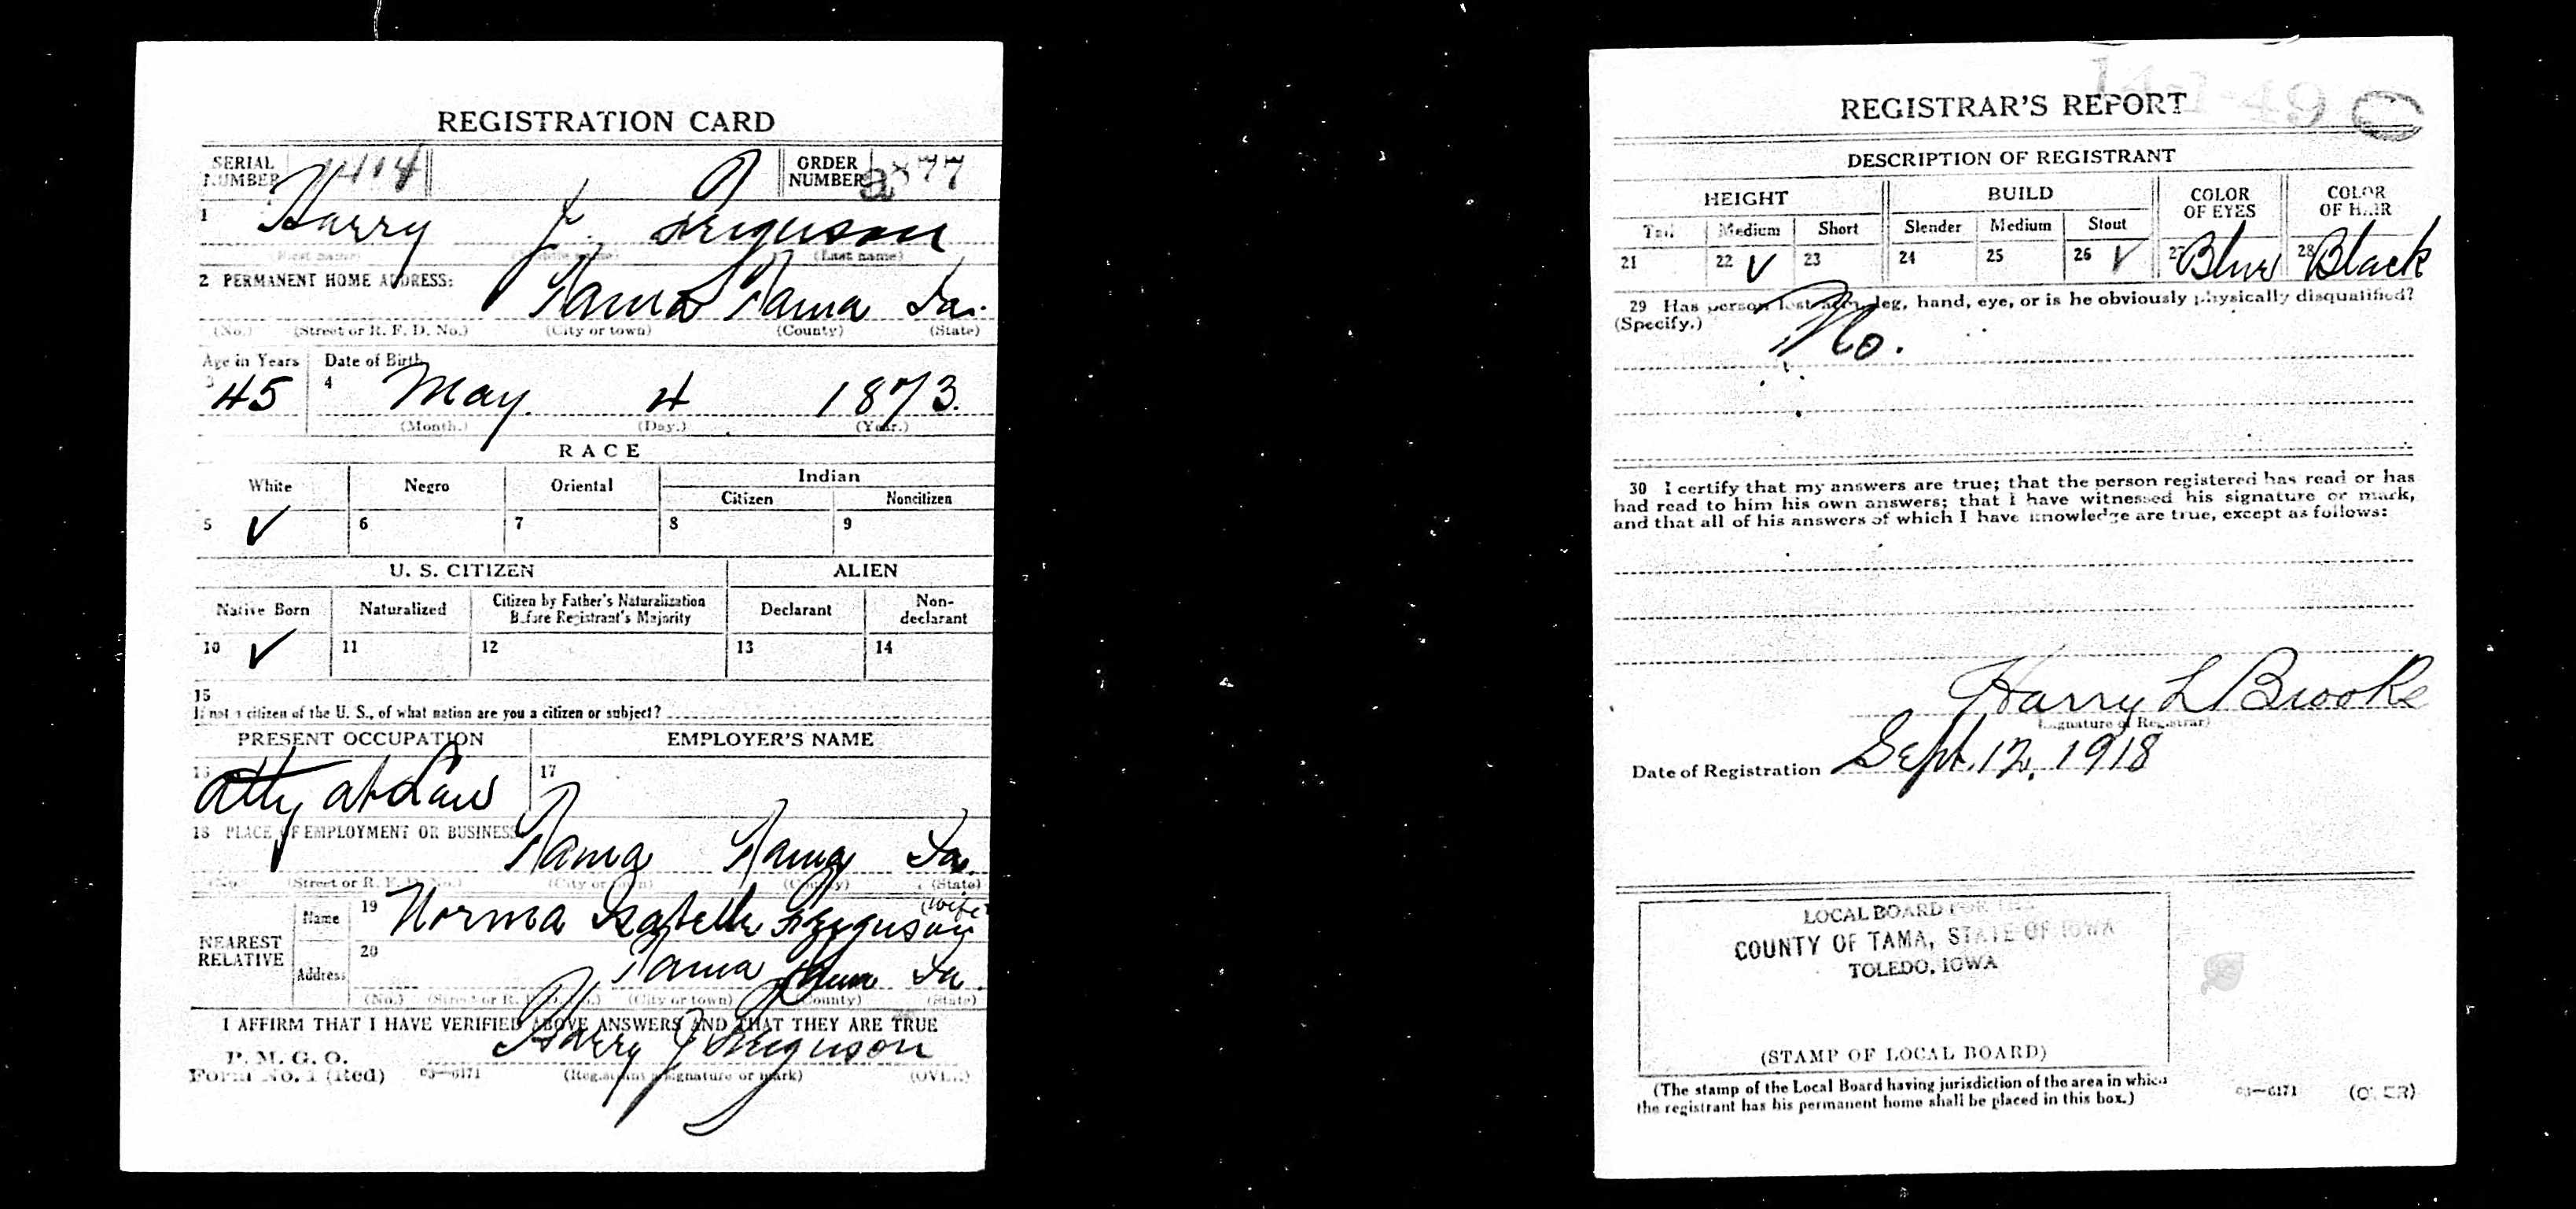 REGISTRATION CARD
SERIAL NUMBER 1414 ORDER NUMBER 2877
1 Harry J. Ferguson
(First name) (Middle name) (Last name)
2 PERMANENT HOME ADDRESS:
Tama Tama Ia.
(No.) (Street or R. F. D. No.) (City or town) (County) (State)
Age in Years Date of Birth
3 45 4 May 4 1873.
(Month.) (Day.) (Year.)
RACE
White Negro Oriental Indian
Citizen Noncitizen
5 ✓ 6 7 8 9
U. S. CITIZEN ALIEN
Native Born Naturalized Citizen by Father's Naturalization Before Registrant's Majority Declarant Non-declarant
10 ✓ 11 12 13 14
15
If not a citizen of the U. S., of what nation are you a citizen or subject?
PRESENT OCCUPATION EMPLOYER'S NAME
16 Atty at Law 17
18 PLACE OF EMPLOYMENT OR BUSINESS
Tama Tama Ia.
(No.) (Street or R. F. D. No.) (City or town) (County) (State)
NEAREST RELATIVE Name 19 Norma Isabelle Ferguson (wife)
Address 20 Tama Tama Ia.
(No.) (Street or R. F. D. No.) (City or town) (County) (State)
I AFFIRM THAT I HAVE VERIFIED ABOVE ANSWERS AND THAT THEY ARE TRUE
P. M. G. O.
Form No. 1 (Red) 03—6171 Harry J Ferguson
(Registrant's signature or mark) (OVER)
REGISTRAR'S REPORT
14-1-49 C
DESCRIPTION OF REGISTRANT
HEIGHT BUILD COLOR OF EYES COLOR OF HAIR
Tall Medium Short Slender Medium Stout
21 22 ✓ 23 24 25 26 ✓ 27 Blue 28 Black
29 Has person lost arm, leg, hand, eye, or is he obviously physically disqualified?
(Specify.) No.
30 I certify that my answers are true; that the person registered has read or has
had read to him his own answers; that I have witnessed his signature or mark,
and that all of his answers of which I have knowledge are true, except as follows:
Harry L Brooks
(Signature of Registrar)
Date of Registration Sept. 12, 1918
LOCAL BOARD FOR THE
COUNTY OF TAMA, STATE OF IOWA
TOLEDO, IOWA
(STAMP OF LOCAL BOARD)
(The stamp of the Local Board having jurisdiction of the area in which
the registrant has his permanent home shall be placed in this box.)
03—6171 (OVER)